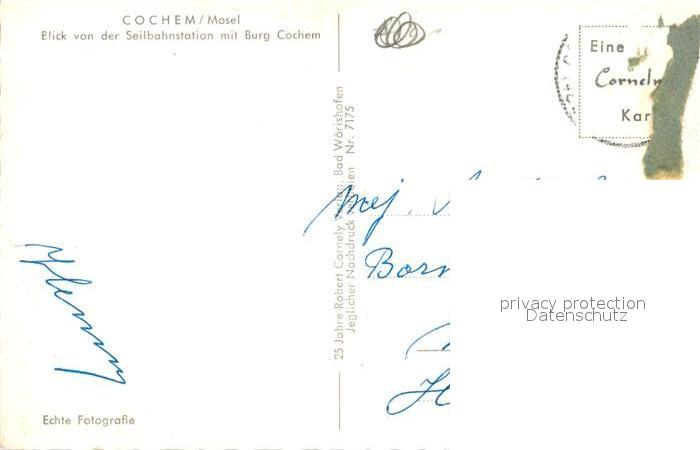 COCHEM/Mosel
Blick von der Seilbahnstation mit Burg Cochem
Eine
Cornely
Kar
25 Jahre Robert Cornely Verlag, Bad Wörishofen
Jeglicher Nachdruck Nr. 7175
Mej.
Born
privacy protection
Datenschutz
H
Echte Fotografie